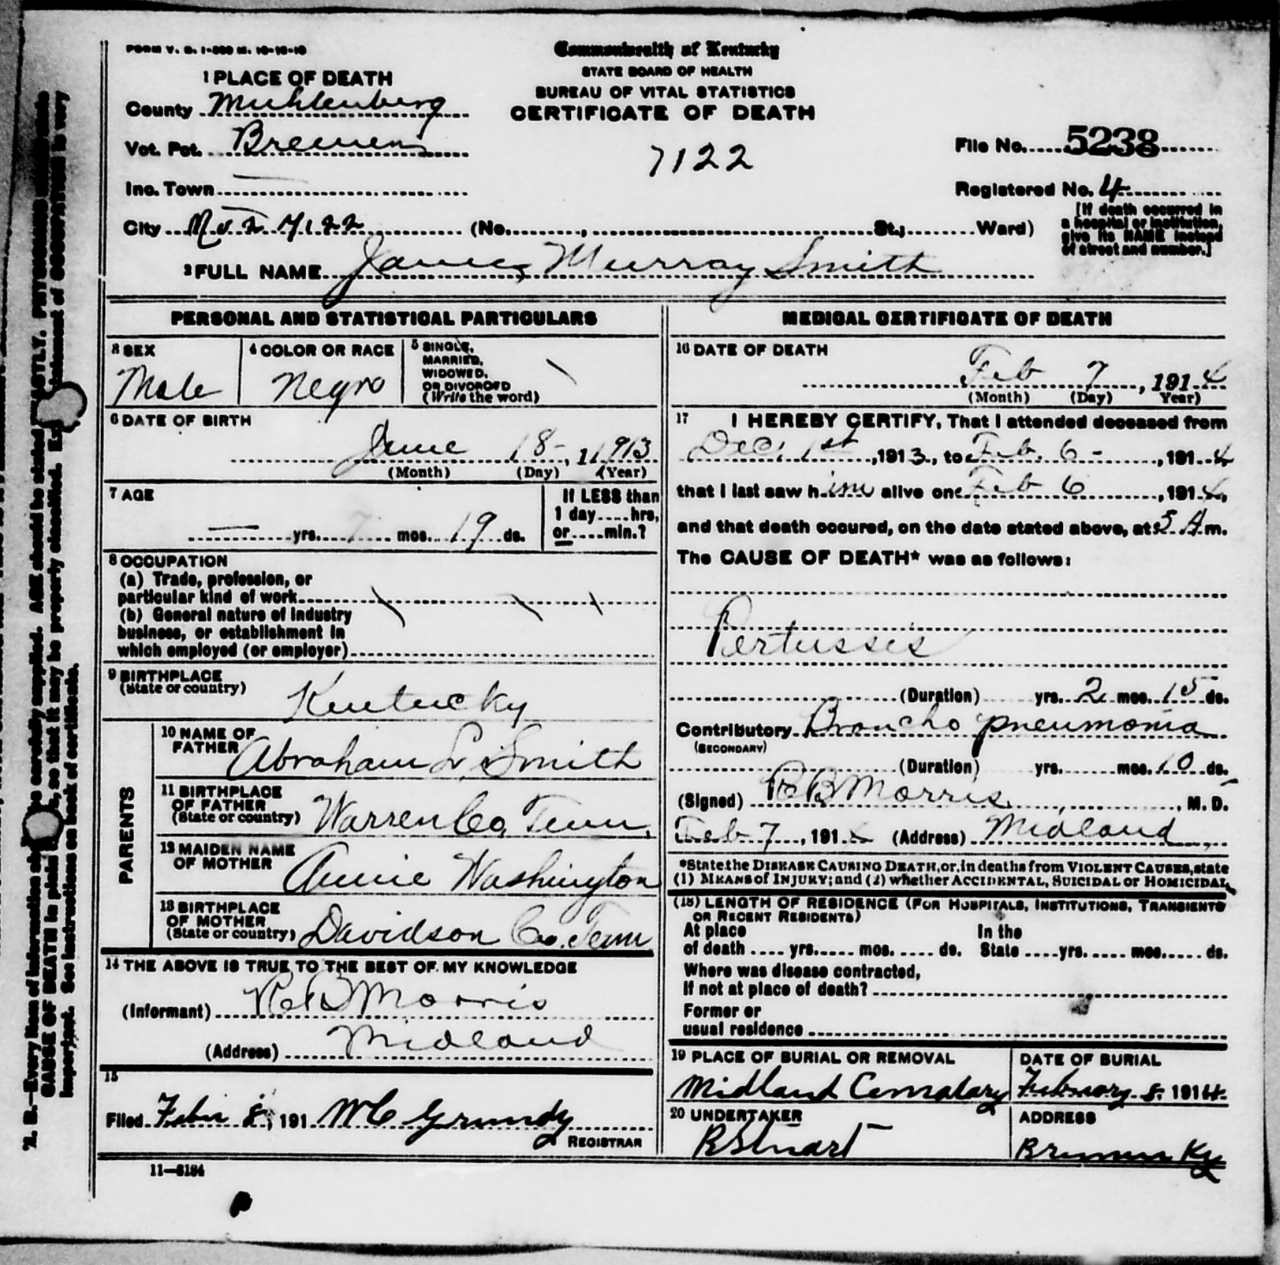 FORM V. S. 1-
Commonwealth of Kentucky
STATE BOARD OF HEALTH
BUREAU OF VITAL STATISTICS
CERTIFICATE OF DEATH
1 PLACE OF DEATH
County Muhlenberg
Vot. Pct. Bremen
7122
File No. 5238
Inc. Town
Registered No. 4
City No 2 7122 (No. , St.; Ward)
[If death occurred in a hospital or institution, give its NAME instead of street and number.]
2 FULL NAME James Murray Smith
PERSONAL AND STATISTICAL PARTICULARS
3 SEX
Male
4 COLOR OR RACE
Negro
5 SINGLE, MARRIED, WIDOWED, OR DIVORCED (Write the word)
6 DATE OF BIRTH
June 18-, 1913
(Month) (Day) (Year)
7 AGE
— yrs. 7 mos. 19 ds.
If LESS than 1 day....hrs, or....min.?
8 OCCUPATION
(a) Trade, profession, or
particular kind of work
(b) General nature of industry
business, or establishment in
which employed (or employer)
9 BIRTHPLACE
(State or country)
Kentucky
PARENTS
10 NAME OF FATHER Abraham L. Smith
11 BIRTHPLACE OF FATHER
(State or country) Warren Co, Tenn,
12 MAIDEN NAME OF MOTHER Annie Washington
13 BIRTHPLACE OF MOTHER
(State or country) Davidson Co. Tenn
14 THE ABOVE IS TRUE TO THE BEST OF MY KNOWLEDGE
(Informant) R B Morris
(Address) Midland
15
Filed Feb 8, 191 W C Grundy
REGISTRAR
11—5184
MEDICAL CERTIFICATE OF DEATH
16 DATE OF DEATH
Feb 7, 1914
(Month) (Day) Year)
17 I HEREBY CERTIFY, That I attended deceased from
Dec, 1st, 1913, to Feb. 6-, 1914
that I last saw him alive on Feb 6, 1914,
and that death occured, on the date stated above, at 5 A.m.
The CAUSE OF DEATH* was as follows:
Pertussis
(Duration) yrs. 2 mos. 15 ds.
Contributory Broncho pneumonia
(SECONDARY)
(Duration) yrs. mos. 10 ds.
(Signed) R B Morris, M. D.
Feb 7, 1914 (Address) Midland
*State the DISEASE CAUSING DEATH, or, in deaths from VIOLENT CAUSES, state
(1) MEANS of INJURY; and (2) whether ACCIDENTAL, SUICIDAL or HOMICIDAL
(18) LENGTH OF RESIDENCE (FOR HOSPITALS, INSTITUTIONS, TRANSIENTS
OR RECENT RESIDENTS)
At place In the
of death .... yrs. .... mos. .... ds. State .... yrs. .... mos. .... ds.
Where was disease contracted,
If not at place of death?
Former or
usual residence
19 PLACE OF BURIAL OR REMOVAL
Midland Cematary
DATE OF BURIAL
February 8 1914
20 UNDERTAKER
R Stuart
ADDRESS
Bremen Ky